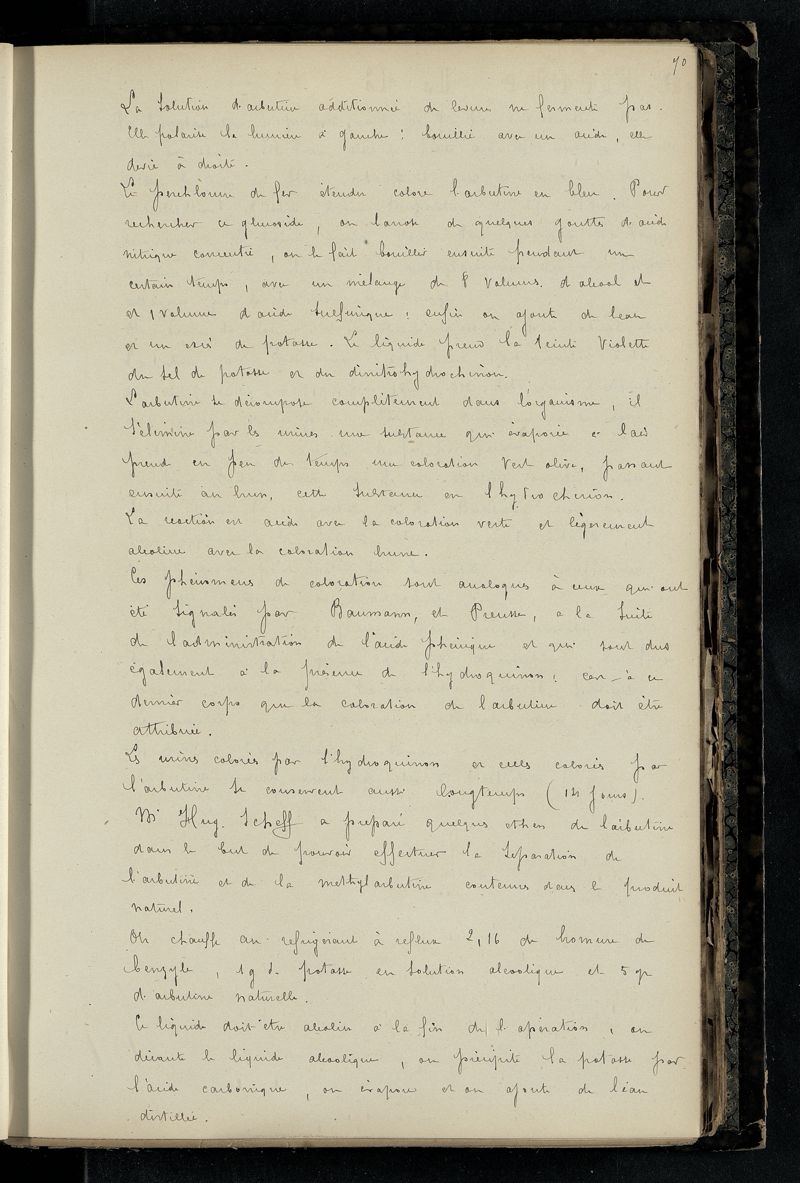 70
La solution d'arbutine additionnée de levure ne fermente pas.
Elle polarise la lumière à gauche : bouillie avec un acide, elle
devie à droite.
Le perchlorure de fer étendu colore l'arbutine en bleu. Pour
rechercher ce glucoside, on l'arrose de quelques gouttes d'acide
nitrique concentré, on le fait bouillir ensuite pendant un
certain temps, avec un mélange de 8 volumes d'alcool et
et 1 volume d'acide sulfurique : enfin on ajoute de l'eau
et un excès de potasse. Le liquide prend la teinte violette
du sel de potasse et du dinitrohydrochinon.
L'arbutine se décompose complètement dans l'organisme, il
s'élimine par les urines une substance qui évaporée à l'air
prend en peu de temps une coloration vert olive, passant
ensuite au brun, cette substance est l'hydrochinon.
La reaction est acide avec la coloration verte et légèrement
alcaline avec la coloration brune.
Ces phénomenes de coloration sont analogues à ceux qui ont
été signalés par Baumann, et Preusse, à la suite
de l'administration de l'acide phénique et qui sont dus
également à la présence de l'hydroquinon : car à ce
dernier corps que la coloration de l'arbutine doit être
attribuée.
Les urines colorées par l'hydroquinon et celles colorées par
l'arbutine se conservent aussi longtemps (14 jours).
Mr Hug. Schiff a préparé quelques ethers de l'arbutine
dans le but de pouvoir effectuer la séparation de
l'arbutine et de la methylarbutine contenues dans le produit
naturel.
On chauffe au refrigérant à reflux 2,16 de bromure de
benzyle, 1g de potasse en solution alcoolique et 5 gr
d'arbutine naturelle.
Ce liquide doit être alcalin à la fin de l'opération, on
décante le liquide alcoolique, on précipite la potasse par
l'acide carbonique, on évapore et on ajoute de l'eau
distillée.